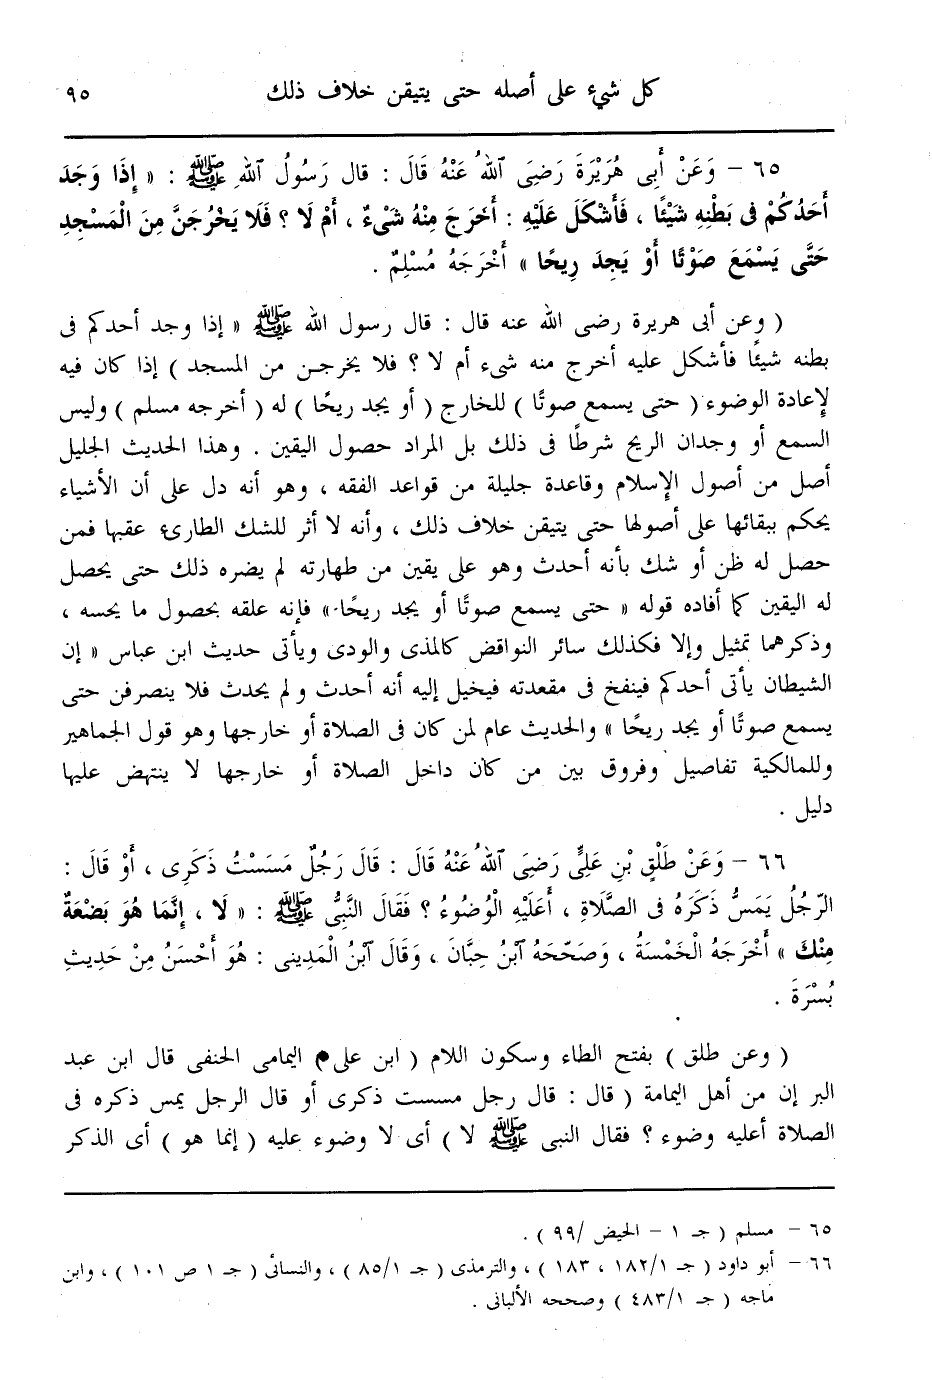 كل شيء على أصله حتى يتيقن خلاف ذلك ٩٥
٦٥ - وَعَنْ أَبِى هُرَيْرَةَ رَضِىَ ٱللهُ عَنْهُ قَالَ : قال رَسُولُ ٱللهِ ﷺ : « إِذَا وَجَدَ
أَحَدُكُمْ فى بَطْنِهِ شَيْئًا ، فَأَشْكَلَ عَلَيْهِ : أَخَرَجَ مِنْهُ شَىْءٌ ، أَمْ لَا ؟ فَلَا يَخْرُجَنَّ مِنَ الْمَسْجِدِ
حَتَّى يَسْمَعَ صَوْتًا أَوْ يَجِدَ رِيحًا » أَخْرَجَهُ مُسْلِمٌ .
( وعن أبى هريرة رضى الله عنه قال : قال رسول الله ﷺ « إذا وجد أحدكم فى
بطنه شيئًا فأشكل عليه أخرج منه شىء أم لا ؟ فلا يخرجن من المسجد ) إذا كان فيه
لإعادة الوضوء ( حتى يسمع صوتًا ) للخارج ( أو يجد ريحًا ) له ( أخرجه مسلم ) وليس
السمع أو وجدان الريح شرطًا فى ذلك بل المراد حصول اليقين . وهذا الحديث الجليل
أصل من أصول الإسلام وقاعدة جليلة من قواعد الفقه ، وهو أنه دل على أن الأشياء
يحكم ببقائها على أصولها حتى يتيقن خلاف ذلك ، وأنه لا أثر للشك الطارئ عقبها فمن
حصل له ظن أو شك بأنه أحدث وهو على يقين من طهارته لم يضره ذلك حتى يحصل
له اليقين كما أفاده قوله « حتى يسمع صوتًا أو يجد ريحًا » فإنه علقه بحصول ما يحسه ،
وذكرهما تمثيل وإلا فكذلك سائر النواقض كالمذى والودى ويأتى حديث ابن عباس « إن
الشيطان يأتى أحدكم فينفخ فى مقعدته فيخيل إليه أنه أحدث ولم يحدث فلا ينصرفن حتى
يسمع صوتًا أو يجد ريحًا » والحديث عام لمن كان فى الصلاة أو خارجها وهو قول الجماهير
وللمالكية تفاصيل وفروق بين من كان داخل الصلاة أو خارجها لا ينتهض عليها
دليل .
٦٦ - وَعَنْ طَلْقِ بْنِ عَلِىٍّ رَضِىَ ٱللهُ عَنْهُ قَالَ : قَالَ رَجُلٌ مَسَسْتُ ذَكَرِى ، أَوْ قَالَ :
الرّجُلُ يَمَسُّ ذَكَرَهُ فى الصَّلَاةِ ، أَعَلَيْهِ الْوُضُوءُ ؟ فَقَالَ النَّبِىُّ ﷺ : « لَا ، إِنَّمَا هُوَ بَضْعَةٌ
مِنْكَ » أَخْرَجَهُ الْخَمْسَةُ ، وَصَحّحَهُ ٱبْنُ حِبَّانَ ، وَقَالَ ٱبْنُ الْمَدِينى : هُوَ أَحْسَنُ مِنْ حَدِيثِ
بُسْرَةَ .
( وعن طلق ) بفتح الطاء وسكون اللام ( ابن على م اليمامى الحنفى قال ابن عبد
البر إن من أهل اليمامة ( قال : قال رجل مسست ذكرى أو قال الرجل يمس ذكره فى
الصلاة أعليه وضوء ؟ فقال النبى ﷺ لا ) أى لا وضوء عليه ( إنما هو ) أى الذكر
٦٥ - مسلم ( جـ ١ - الحيض /٩٩ ) .
٦٦ - أبو داود ( جـ ١٨٢/١ ، ١٨٣ ) ، والترمذى ( جـ ٨٥/١ ) ، والنسائى ( جـ ١ ص ١٠١ ) ، وابن
ماجه ( جـ ٤٨٣/١ ) وصححه الألبانى .